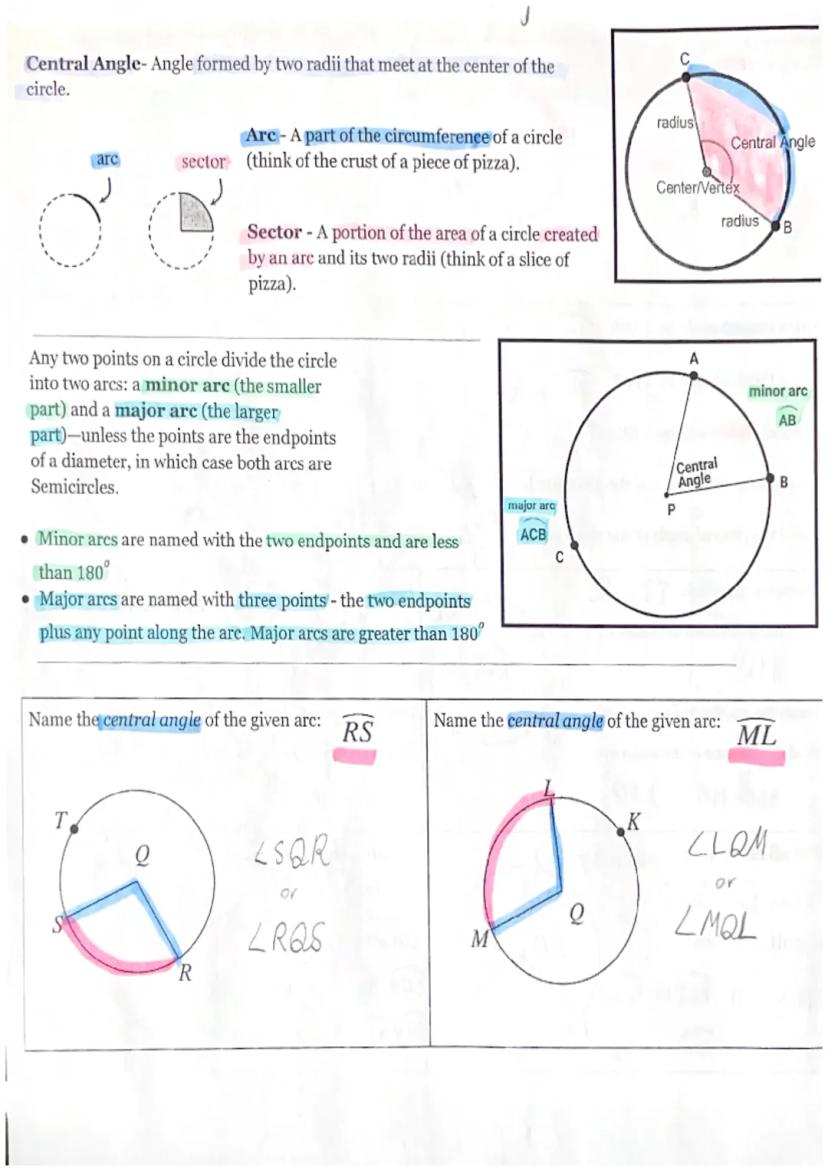 Central Angle- Angle formed by two radii that meet at the center of the
circle.
Arc - A part of the circumference of a circle
(think of the crust of a piece of pizza).
arc
sector
Sector - A portion of the area of a circle created
by an arc and its two radii (think of a slice of
pizza).
C
radius
Central Angle
Center/Vertex
radius
B
Any two points on a circle divide the circle
into two arcs: a minor arc (the smaller
part) and a major arc (the larger
part)—unless the points are the endpoints
of a diameter, in which case both arcs are
Semicircles.
• Minor arcs are named with the two endpoints and are less
than 180⁰
• Major arcs are named with three points - the two endpoints
plus any point along the arc. Major arcs are greater than 180⁰
A
minor arc
AB
Central
Angle
B
P
major arc
ACB
C
Name the central angle of the given arc: RS
T
Q
S
R
∠SQR
or
∠RQS
Name the central angle of the given arc: ML
L
K
Q
M
∠LQM
or
∠MQL